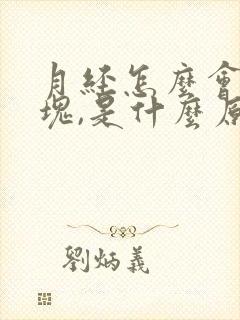 月經怎麼會
塊,是什麼原
劉炳義